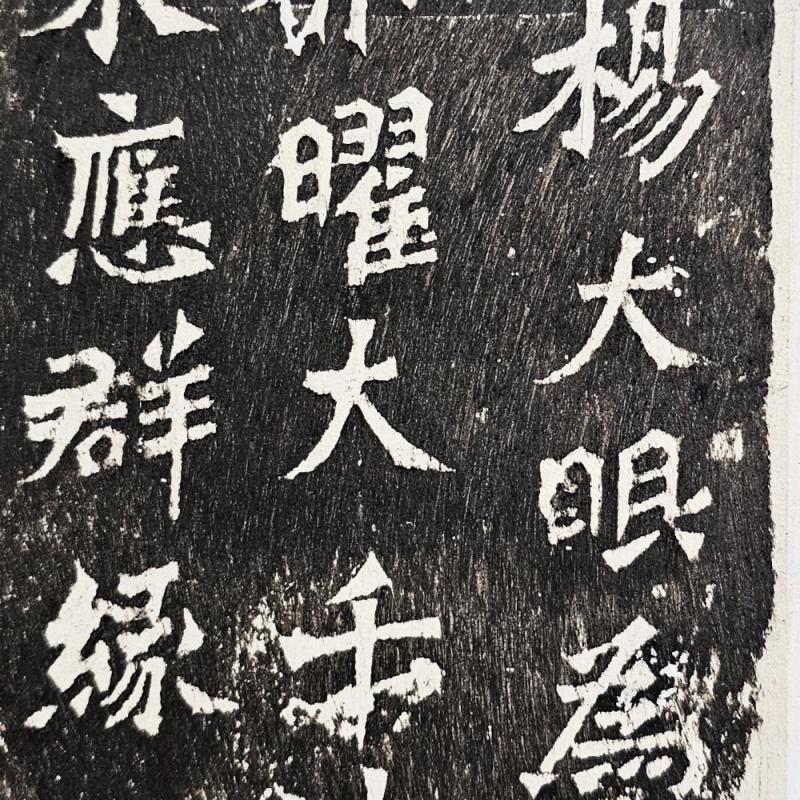 楊大眼為
曜大千
應群緣